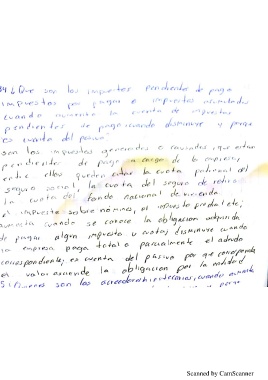 34 ¿Que son los impuestos pendientes de pago
impuestos por pagar o impuestos acumulados
cuando aumenta la cuenta de impuestos
pendientes de pago cuando disminuye y porque
es cuenta del pasivo?
son los impuestos generados o causados, que estan
pendientes de pago a cargo de la empresa,
entre ellos pueden estar la cuota patronal del
seguro social, la cuota del seguro de retiro
la cuota del fondo nacional de vivienda
el impuesto sobre nómina, el impuesto predial etc;
aumenta cuando se conoce la obligación
de pagar algun impuesto y cuotas; disminuye cuando
la empresa paga total o parcialmente el adeudo
correspondiente; es cuenta del pasivo por que corresponde
valor asciende la obligación por la entidad
son los acreedores hipotecarios, cuando aumenta
Scanned by CamScanner